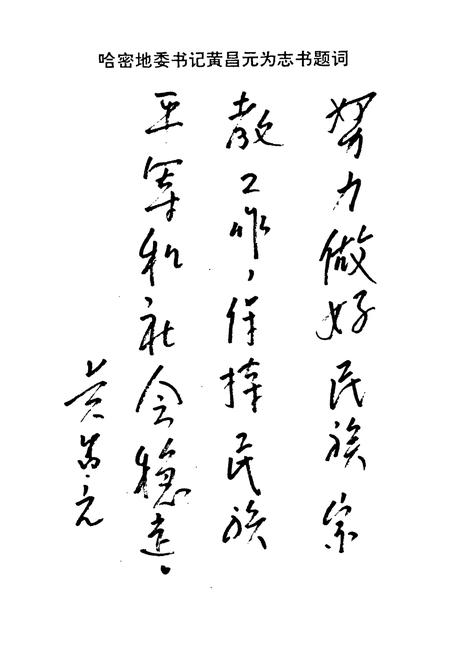 哈密地委书记黄昌元为志书题词
努力做好民族宗
教工作，保持民族
和社会稳定。
黄昌元